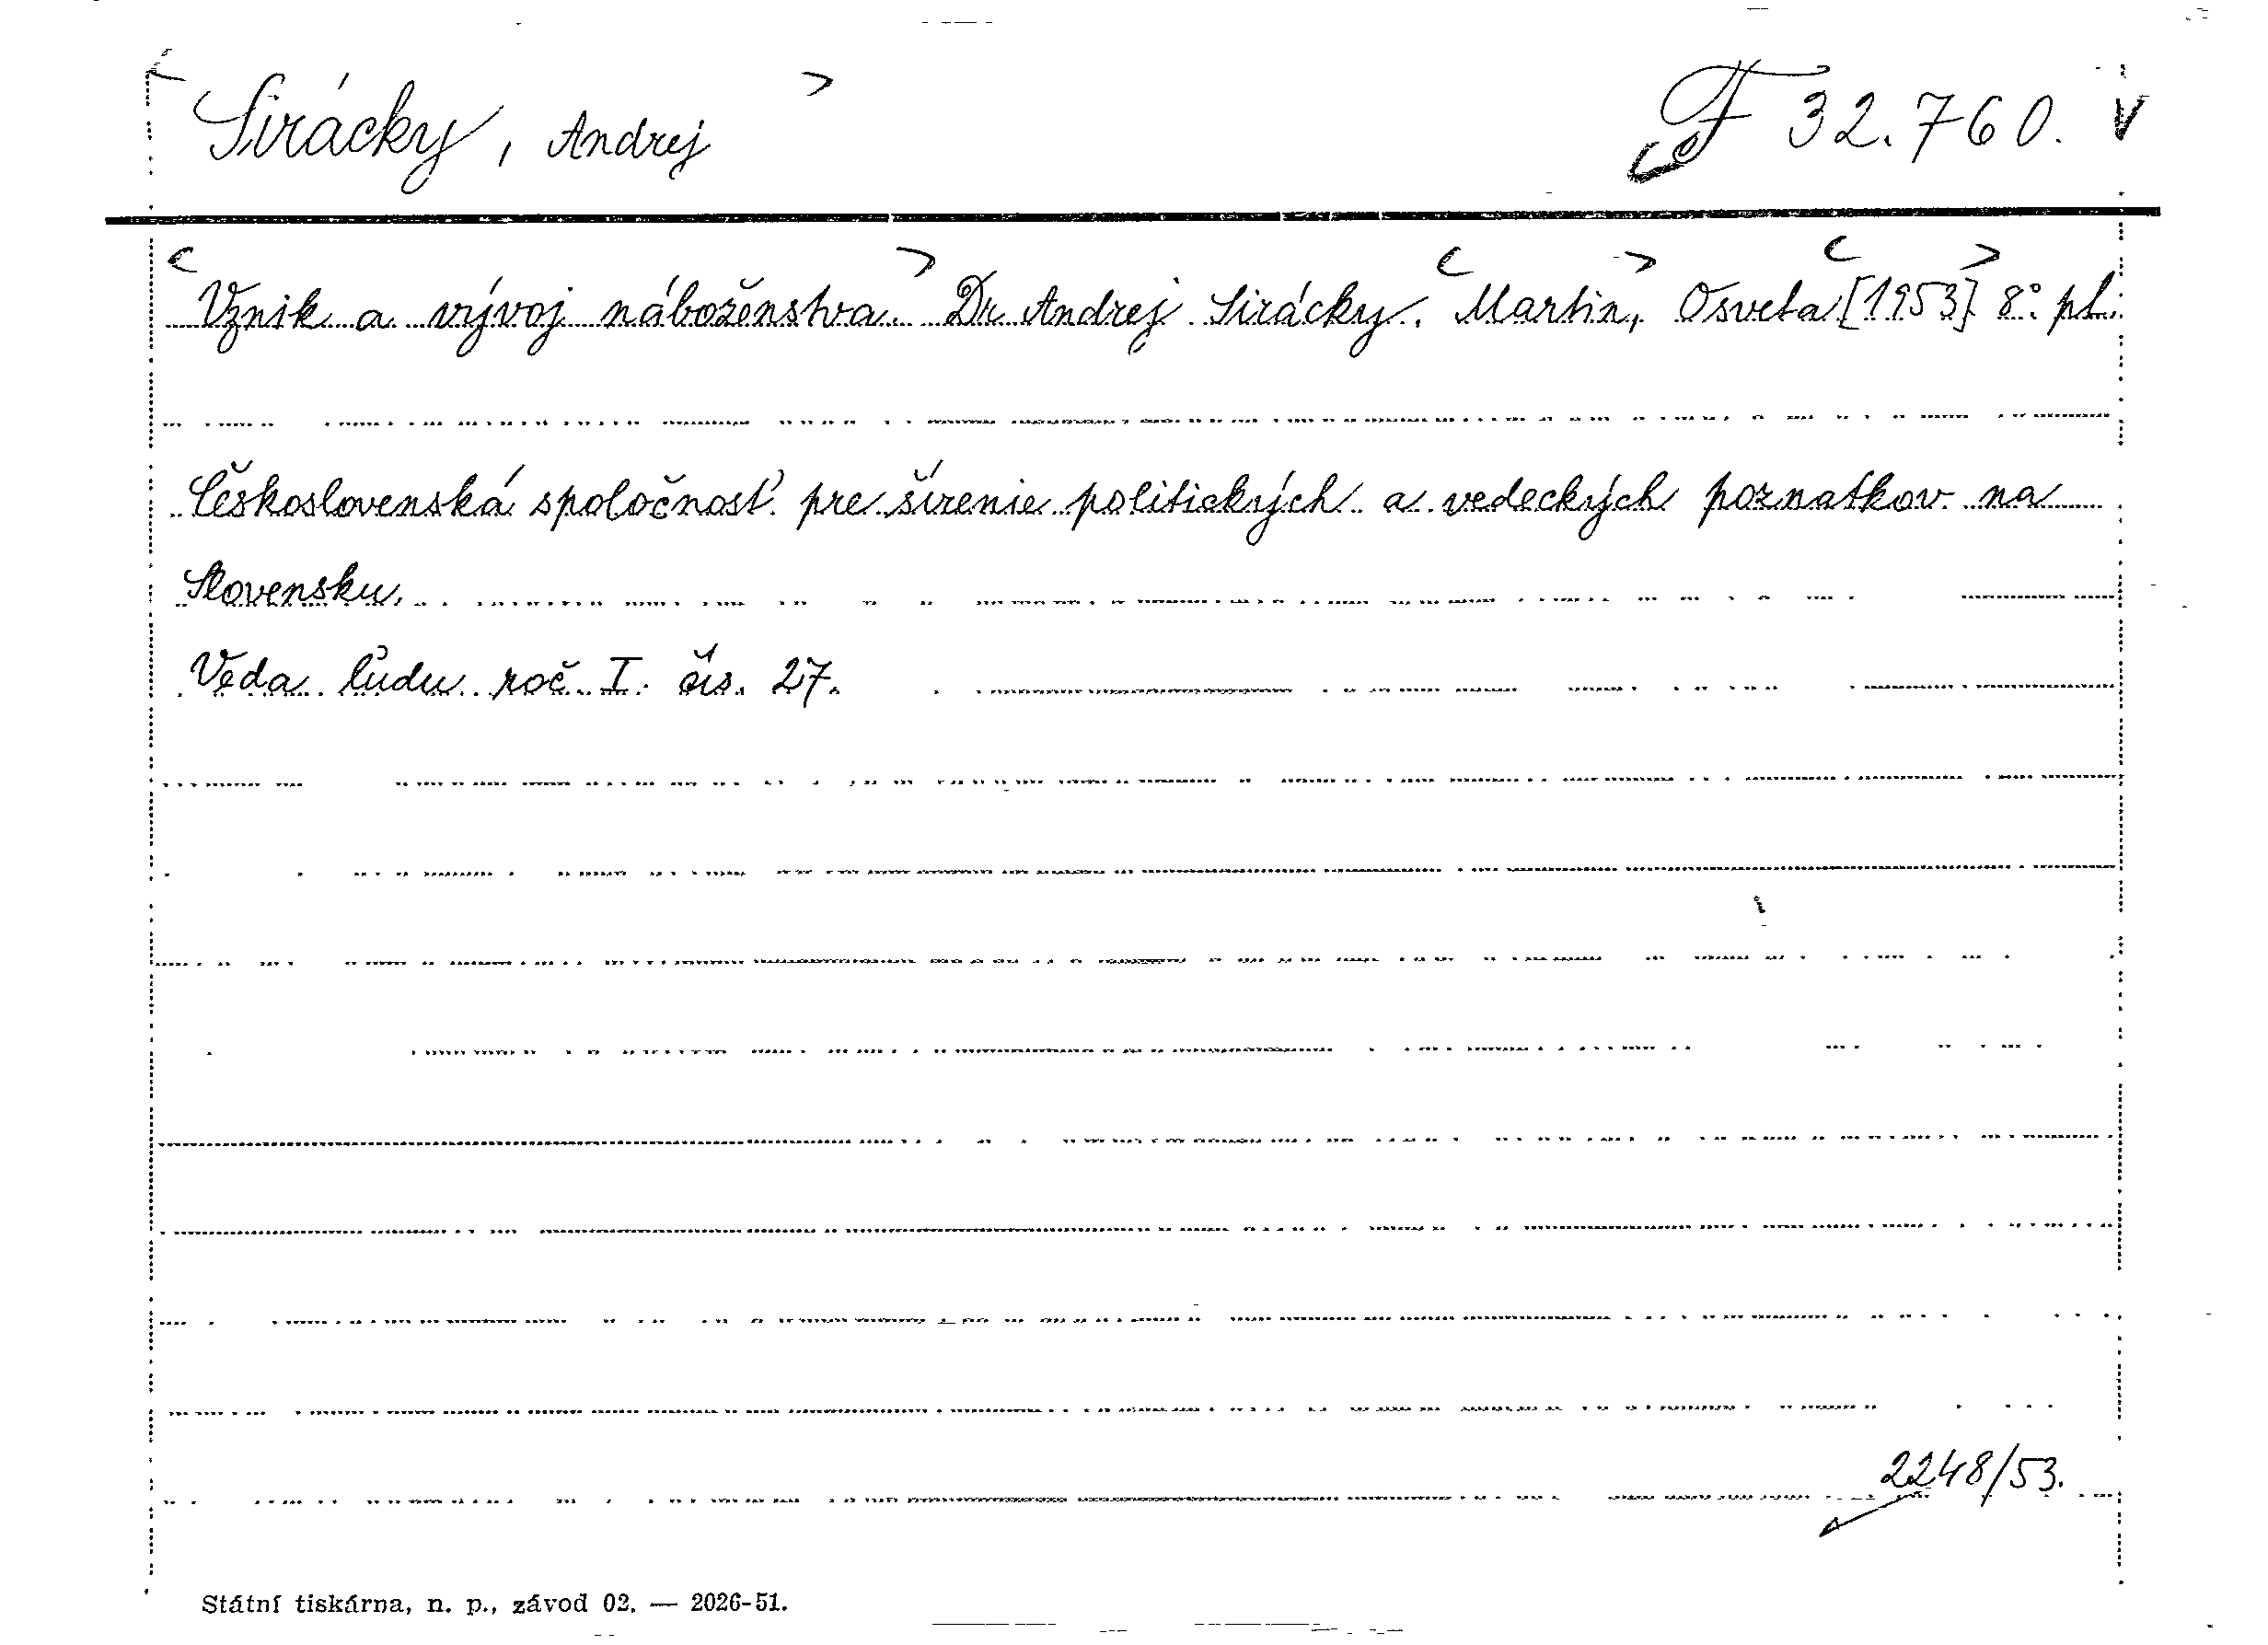 Sirácky, Andrej F 32.760. V
Vznik a vývoj náboženstva. Dr. Andrej Sirácky. Martin, Osveta [1953] 8°. pl.
Československá spoločnosť pre šírenie politických a vedeckých poznatkov na
Slovensku.
Veda ľudu roč. I. čís. 27.
2248/53.
Státní tiskárna, n. p., závod 02. — 2026-51.